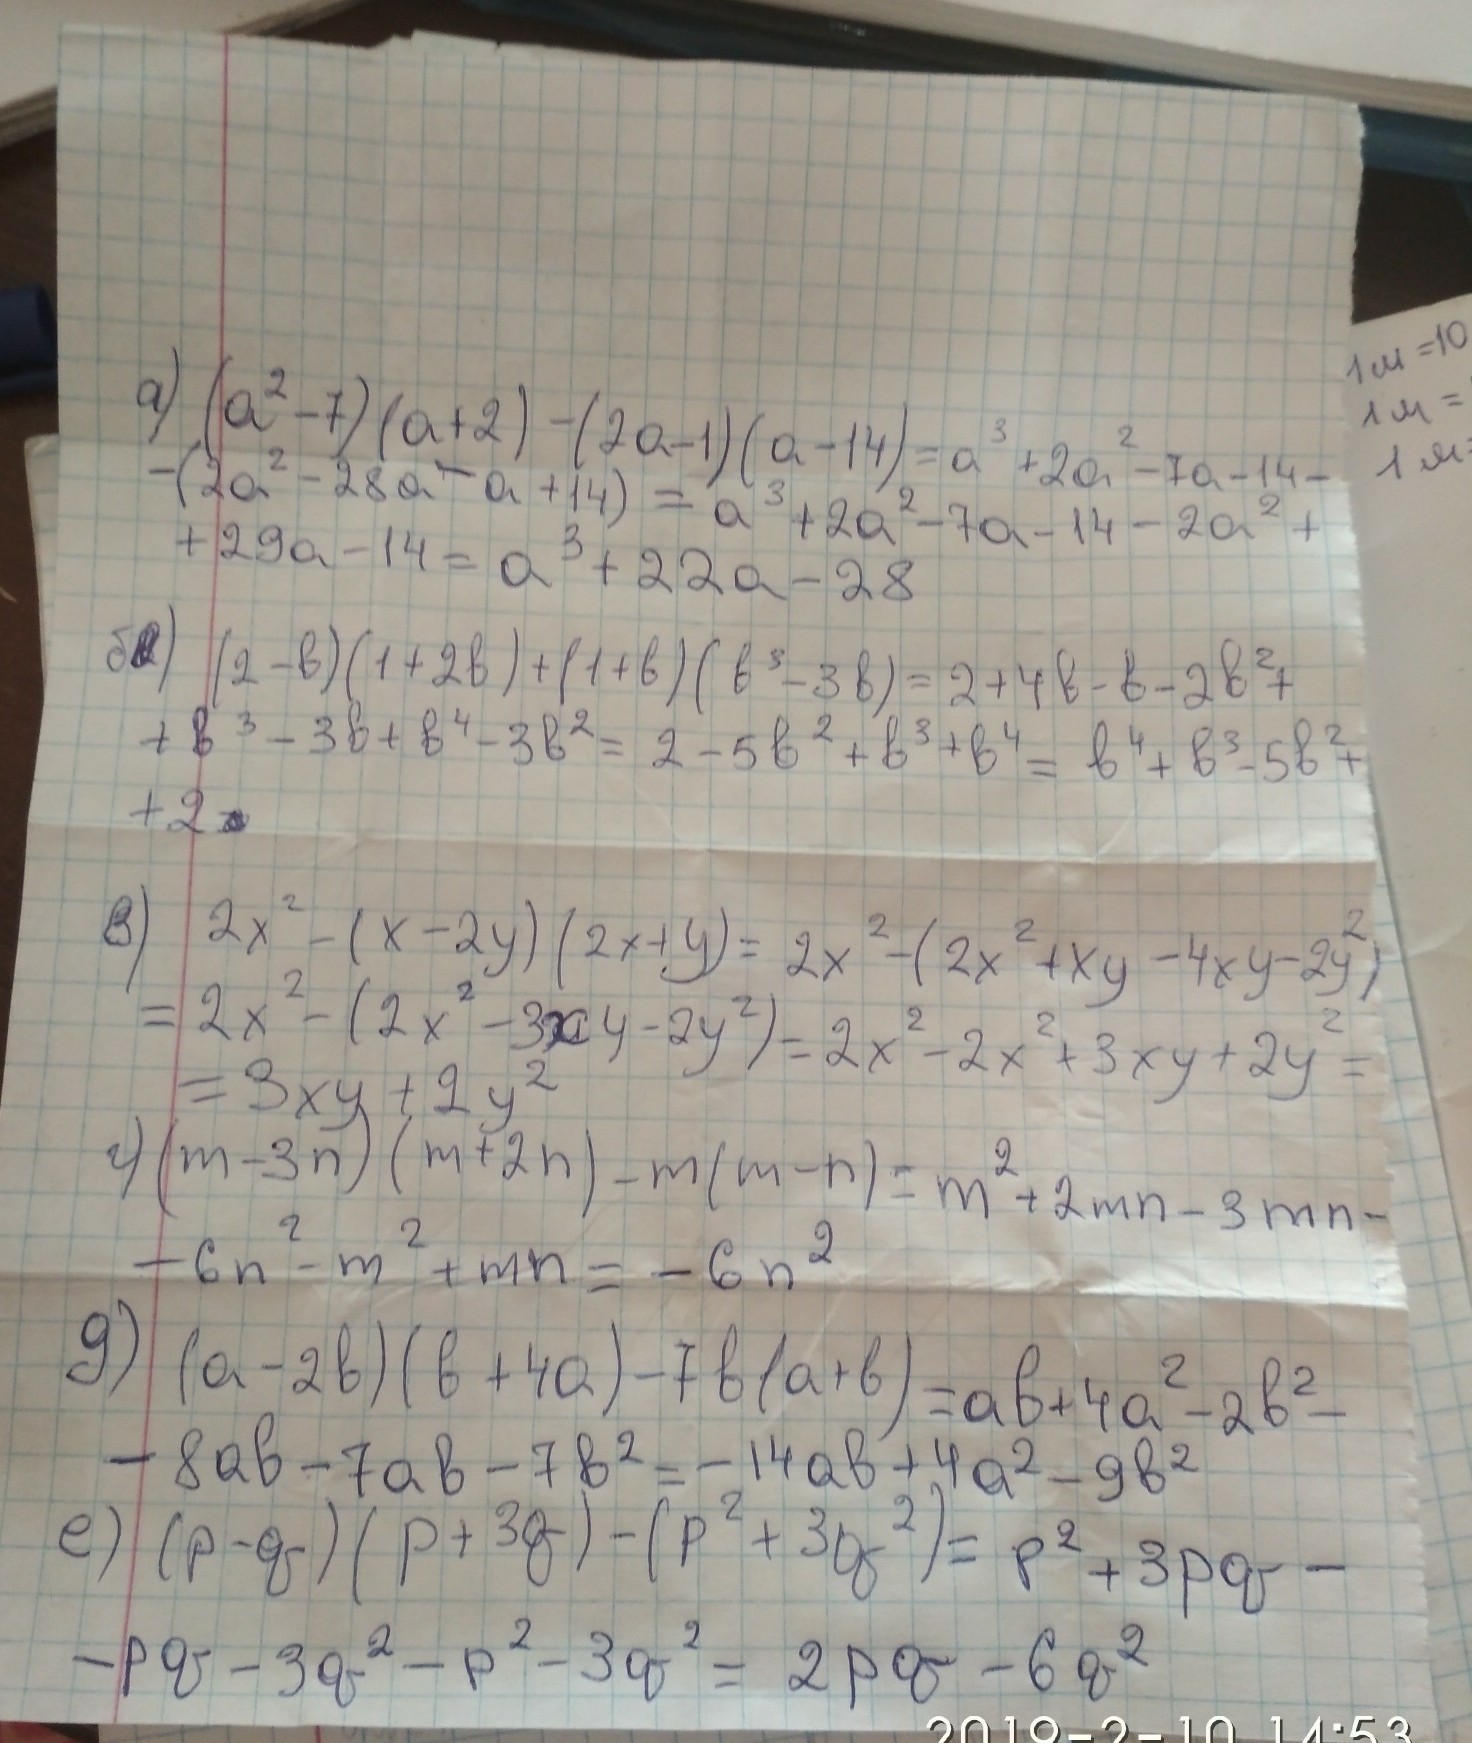 а) (a²-7)(a+2)-(2a-1)(a-14)=a³+2a²-7a-14-
-(2a²-28a-a+14)=a³+2a²-7a-14-2a²+
+29a-14=a³+22a-28
б) (2-b)(1+2b)+(1+b)(b³-3b)=2+4b-b-2b²+
+b³-3b+b⁴-3b²=2-5b²+b³+b⁴=b⁴+b³-5b²+
+2
в) 2x²-(x-2y)(2x+y)=2x²-(2x²+xy-4xy-2y²)
=2x²-(2x²-3xy-2y²)=2x²-2x²+3xy+2y²=
=3xy+2y²
г) (m-3n)(m+2n)-m(m-n)=m²+2mn-3mn-
-6n²-m²+mn=-6n²
д) (a-2b)(b+4a)-7b(a+b)=ab+4a²-2b²-
-8ab-7ab-7b²=-14ab+4a²-9b²
е) (p-q)(p+3q)-(p²+3q²)=p²+3pq-
-pq-3q²-p²-3q²=2pq-6q²
1м=10
1м=
1м=
2019-2-10 14:53